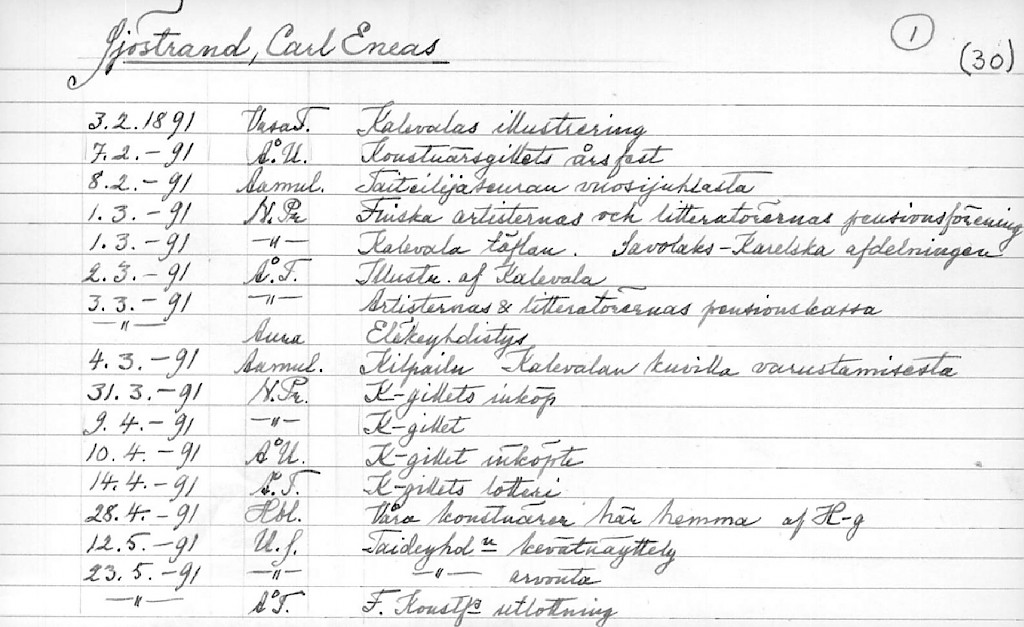 Sjöstrand, Carl Eneas 1 (30)
3.2.1891 VasaT. Kalevalas illustrering
7.2.-91 Å.U. Konstnärsgillets årsfest
8.2.-91 Aamul. Taiteilijaseuran vuosijuhlasta
1.3.-91 N.Pr. Finska artisternas och litteratörernas pensionsförening
1.3.-91 -"- Kalevala täflan. Savolaks-Karelska afdelningen
2.3.-91 Å.T. Illustr. af Kalevala
3.3.-91 -"- Artisternas & litteratörernas pensionskassa
-"- Aura Eläkeyhdistys
4.3.-91 Aamul. Kilpailu Kalevalan kuvilla varustamisesta
31.3.-91 N.Pr. K-gillets inköp
9.4.-91 -"- K-gillet
10.4.-91 Å.U. K-gillet inköpte
14.4.-91 Å.T. K-gillets lotteri
28.4.-91 Hbl. Våra konstnärer här hemma af H-g
12.5.-91 U.S. Taideyhd n kevätnäyttely
23.5.-91 -"- -"- arvonta
-"- Å.T. F. Konstfs utlottning